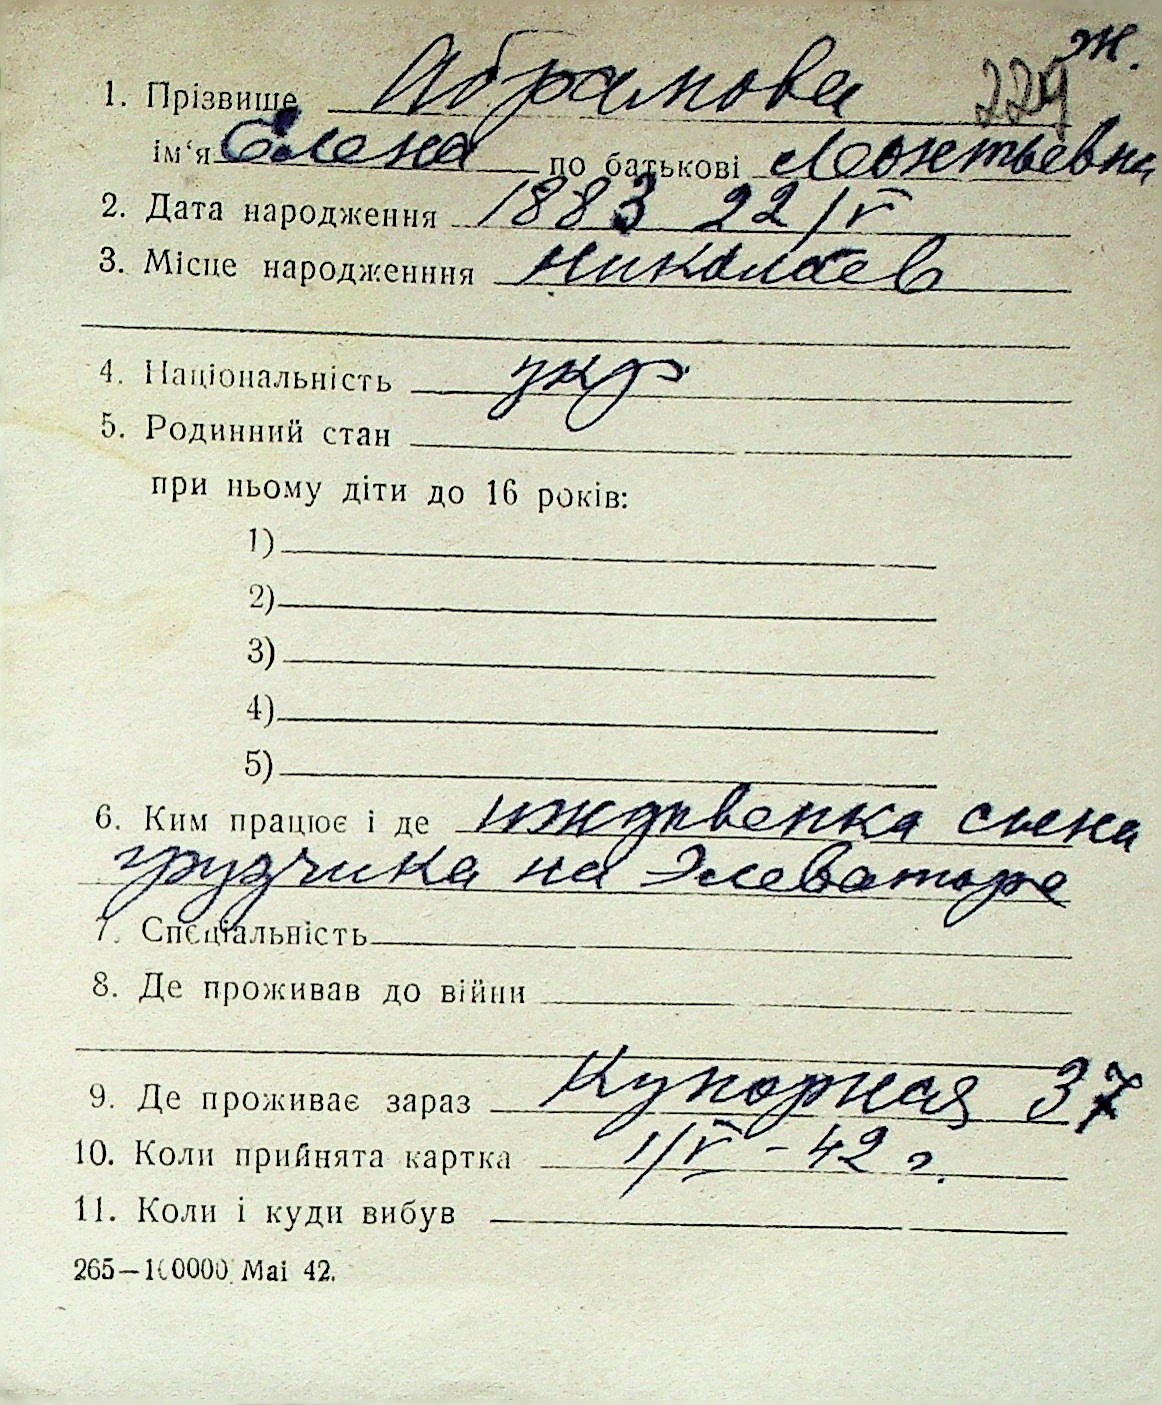 ж.
1. Прізвище Абрамова 229
ім'я Елена по батькові Леонтьевна
2. Дата народження 1883 22/V
3. Місце народженння Николаев
4. Національність укр
5. Родинний стан
при ньому діти до 16 років:
1)
2)
3)
4)
5)
6. Ким працює і де иждивенка сына
грузчика на Элеваторе
7. Спеціальність
8. Де проживав до війни
9. Де проживає зараз Купорная 37
10. Коли прийнята картка 1/V - 42 г.
11. Коли і куди вибув
265—100000 Mai 42.